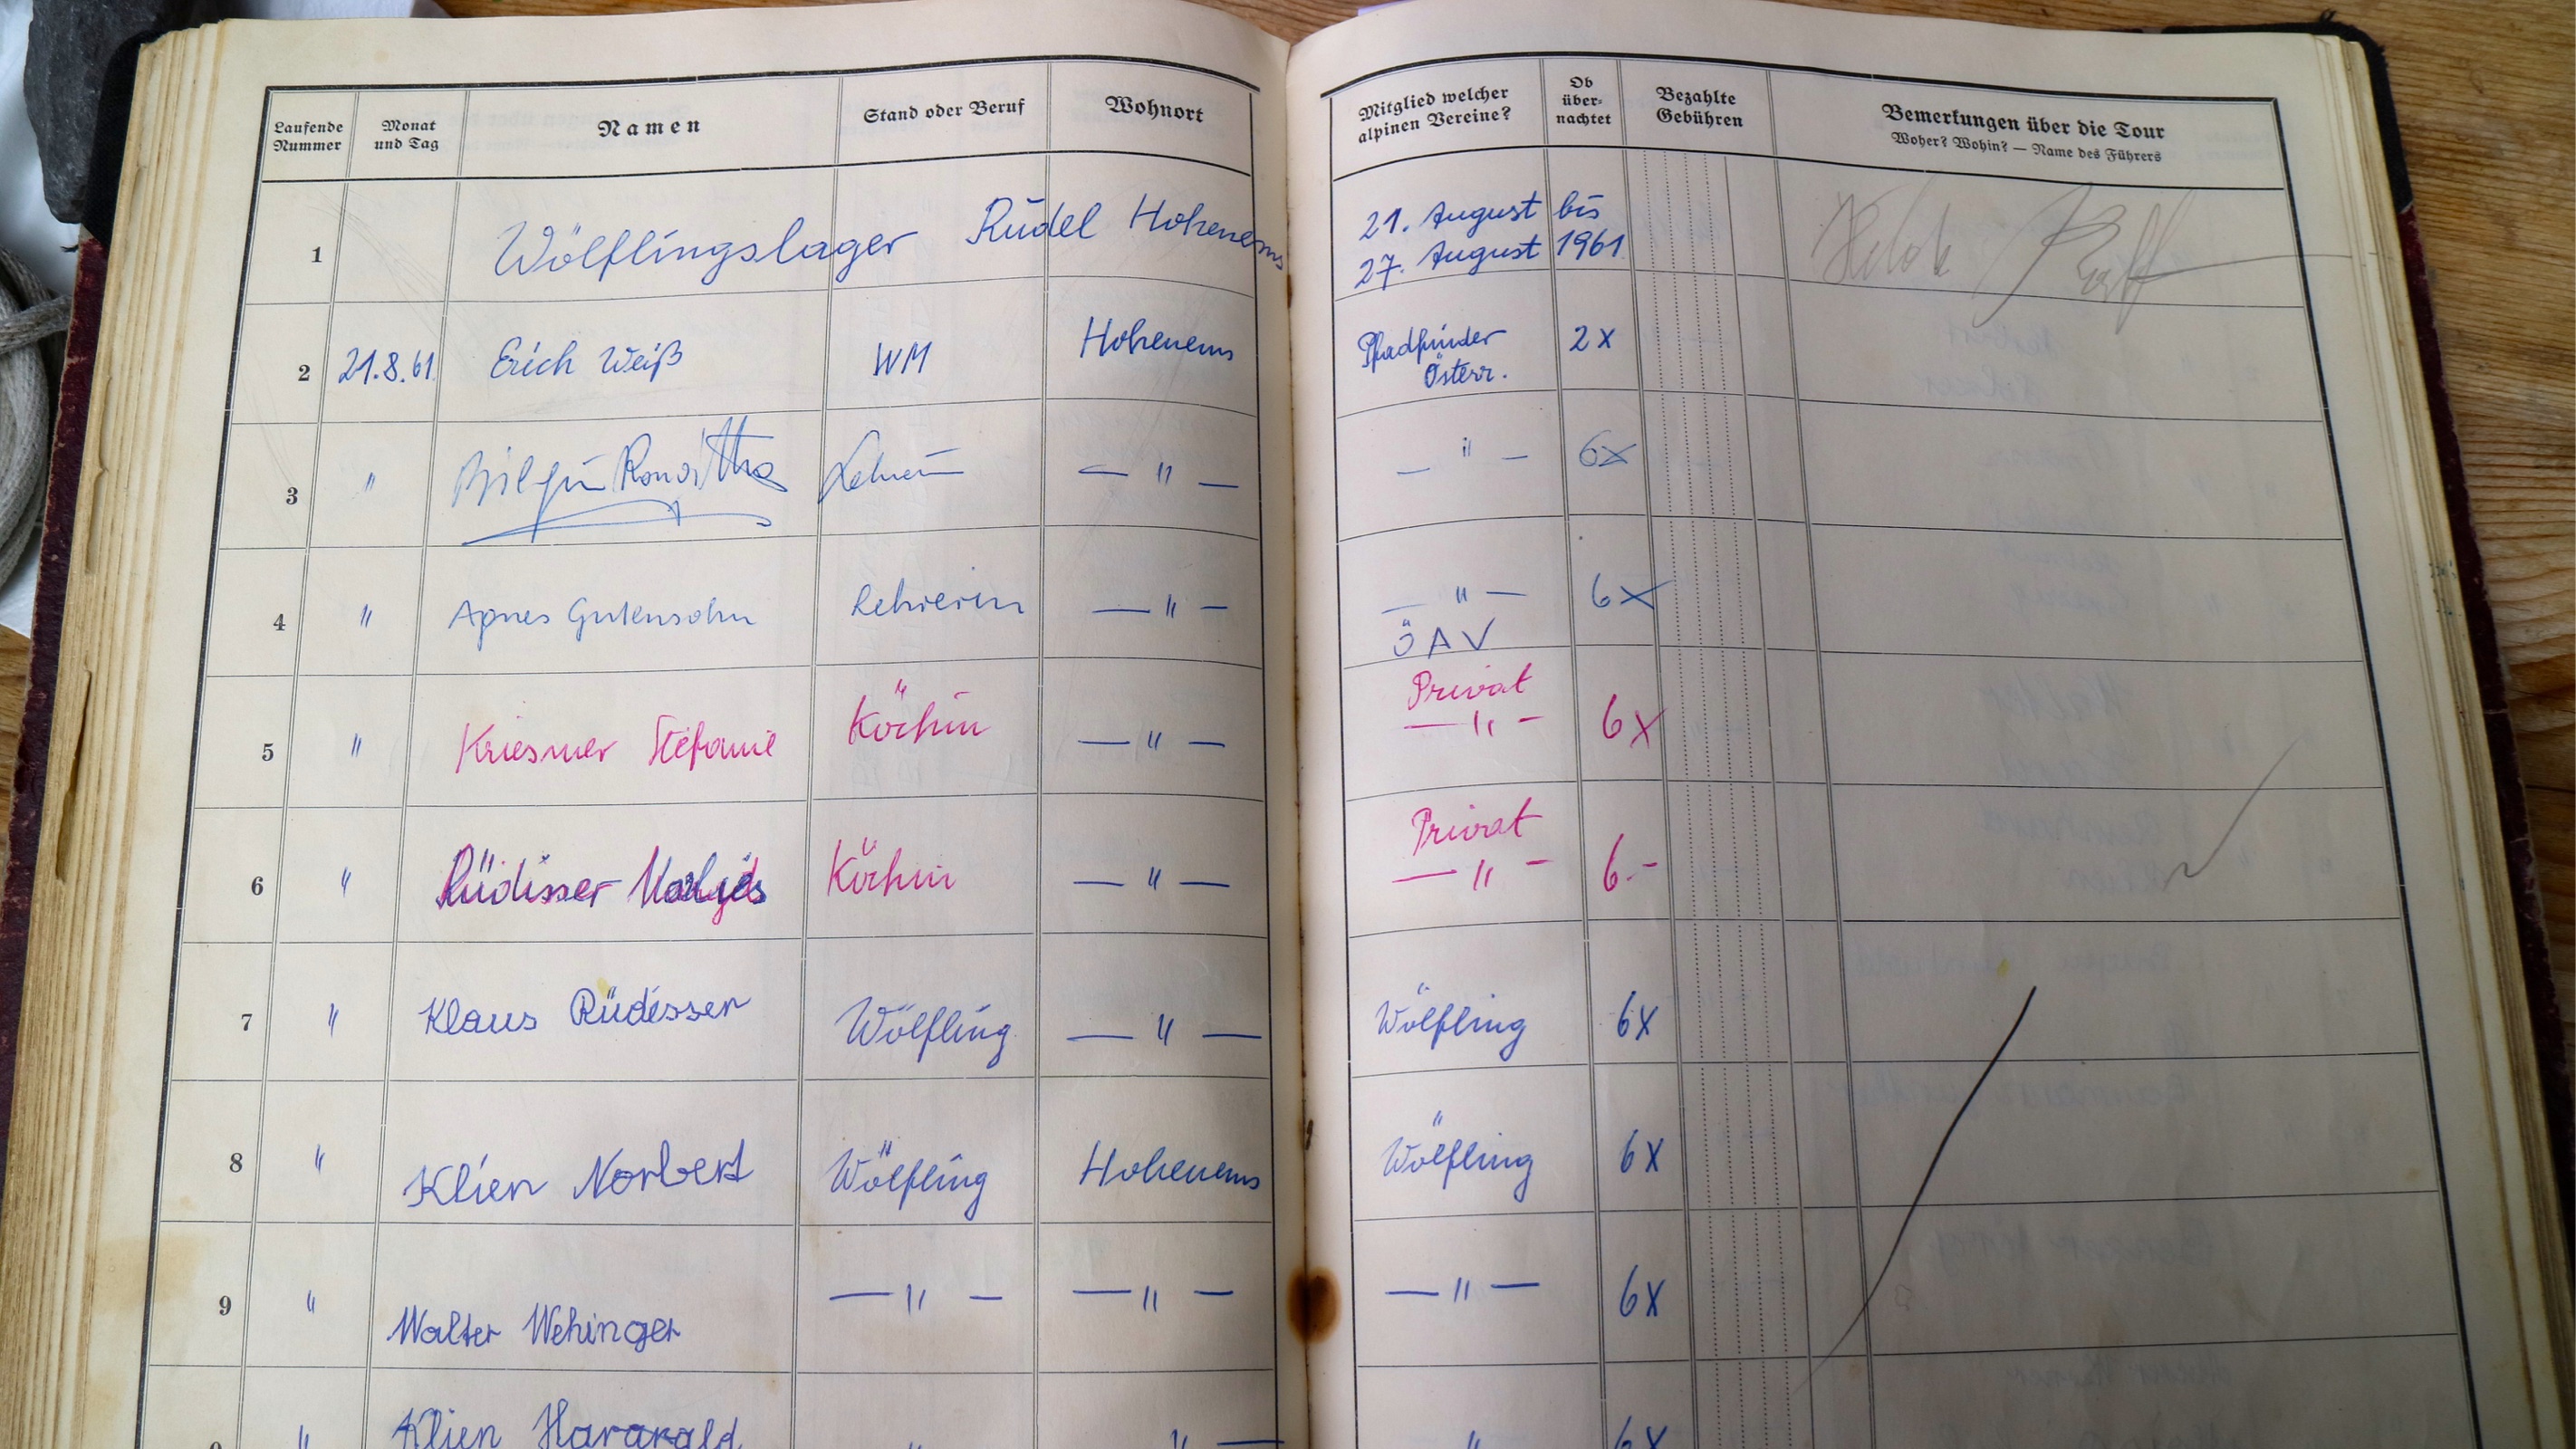 Laufende Nummer Monat und Tag Namen Stand oder Beruf Wohnort Mitglied welcher alpinen Vereine? Ob über-nachtet Bezahlte Gebühren Bemerkungen über die Tour
Woher? Wohin? — Name des Führers
1 Wölflingslager Rudel Hohenems 21. August bis
27. August 1961
2 21.8.61 Erich Weiß WM Hohenems Pfadfinder 2x
Österr.
3 " — " — — " — 6x
4 " Agnes Gutensohn Lehrerin — " — — " — 6x
ÖAV
5 " Stefanie Köchin — " — Privat
— " — 6x
6 " Rüdisser Köchin — " — Privat
— " — 6.-
7 " Klaus Rüdisser Wölfling — " — Wölfling 6x
8 " Klien Norbert Wölfling Hohenems Wölfling 6x
9 " Walter Wehinger — " — — " — — " — 6x
" Klien Hararald " " — " 6x